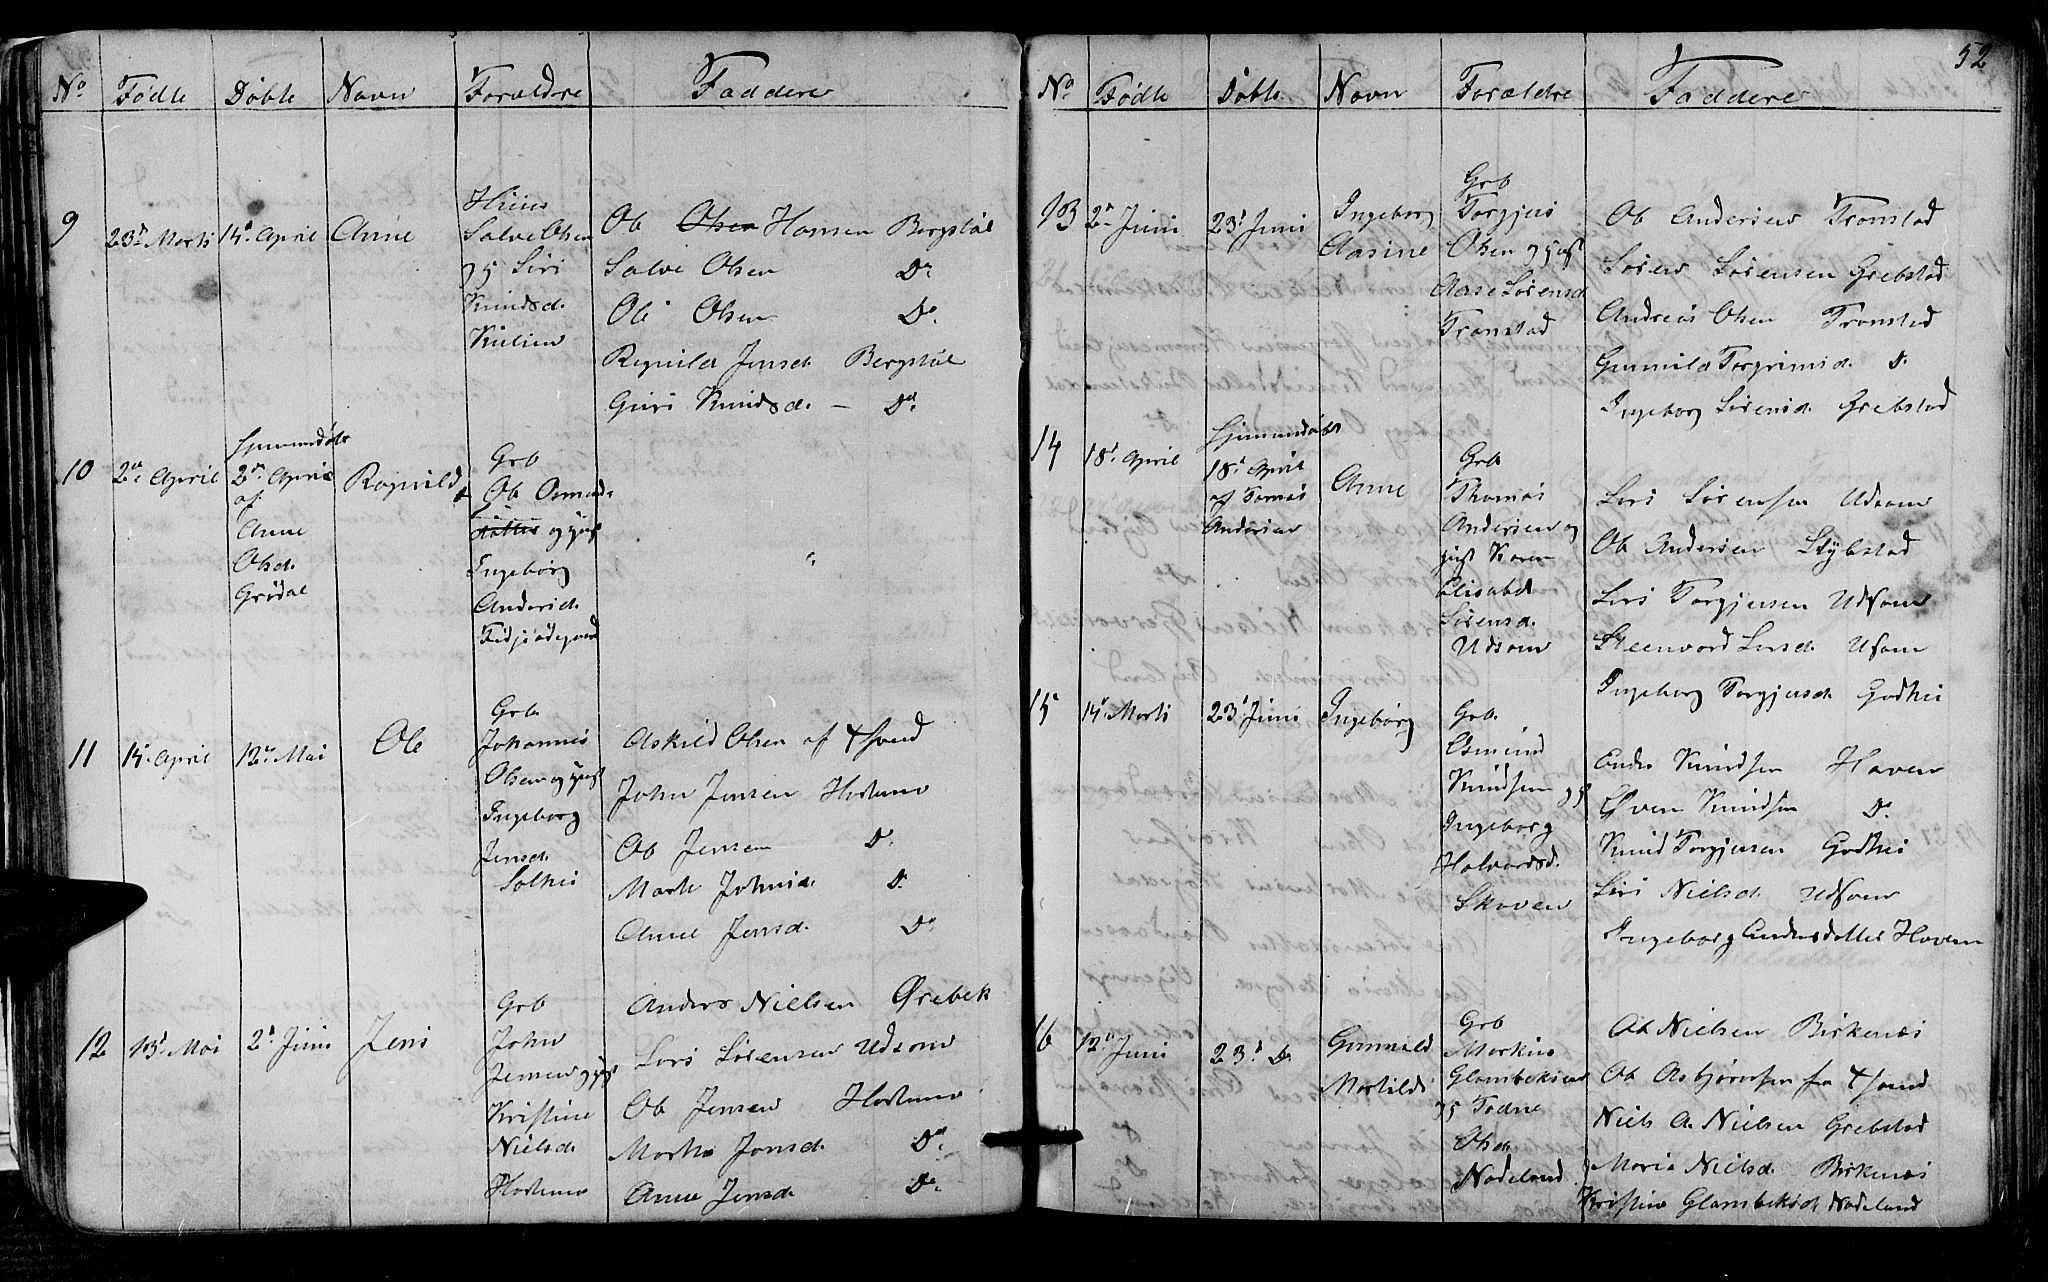 No Fødte Døbte Navn Forældre Faddere
9 23de Marts 14de April Anne
Salve Olsen
og Siri
Knudsd.
Ole Olsen Hansen Bergstøl
Salve Olsen Do
Ole Olsen Do
Regnild Jensd. Bergstøl
Guri Knudsd. — Do
10 2de April
Hjemmedøbt
2den April
af
Anne
Olsd.
Grødal
Ragnild
Grb
Ole Osmunds.
og Hust
Ingeborg
Andersd.
11 14de April 12te Mai Ole
Grb
Johannes
Olsen og Hust
Ingeborg
Jensd.
Askild Olsen af
John Jensen
Ole Jensen Do
Marte Johnsd. Do
Anne Jensd. Do
12 13de Mai 2den Juni Jens
Grb
John
Jensen og Hust
Kristine
Nielsd.
Anders Nielsen Ørebek
Lars Sørensen Udsonn
Ole Jensen
Marthe Jonsd. Do
Anne Jensd. Do
52
No Fødte Døbte Navn Forældre Faddere
13 2den Juni 23de Juni
Ingeborg
Aasine
Grb
Torgjus
Olsen og Hust
Aase Sørensd.
Tronstad
Ole Andersen Tronstad
Søren Sørensen Grebstad
Andreas Olsen Tronstad
Gunnild Torgrimsd. Do
Ingeborg Sørensd. Grebstad
14 18de April
Hjemmedøbt
18de April
af Tomas
Andersen
Anne
Grb
Thomas
Andersen og
Hust Karen
Elisabet
Sørensd.
Udsonn
Lars Sørensen Udsonn
Ole Andersen
Lars Torgjusen Udsonn
Ingeborg Torgjusd. Godhei
15 14de Marts 23de Juni Ingeborg
Grb
Osmund
Knudsen og
Ingeborg
Halvorsd.
Skoven
Anders Knudsen Haven
Øven Knudsen Do
Knud Torgjusen Godhei
Siri Nielsd. Udsonn
Ingeborg Andersdatter Haven
16 12te Juni 23de Do
Gunnild
Martilde
Grb
Markus
Glambeksen
og Todne
Olsd.
Nodeland
Ole Nielsen Birkenæs
Ole Asbjørnsen fra
Niels A. Nielsen Grebstad
Maria Nielsd. Birkenæs
Kristine Glambeksd. Nodeland